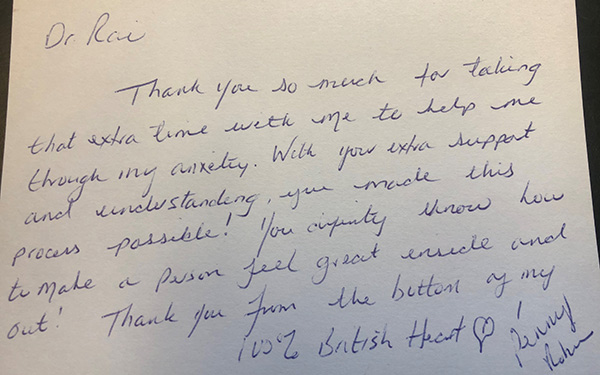 Dr. Rai
Thank you so much for taking
that extra time with me to help me
through my anxiety. With your extra support
and understanding, you made this
process possible! You know how
to make a person feel great inside and
out! Thank you from the bottom of my
100% British Heart
Penny